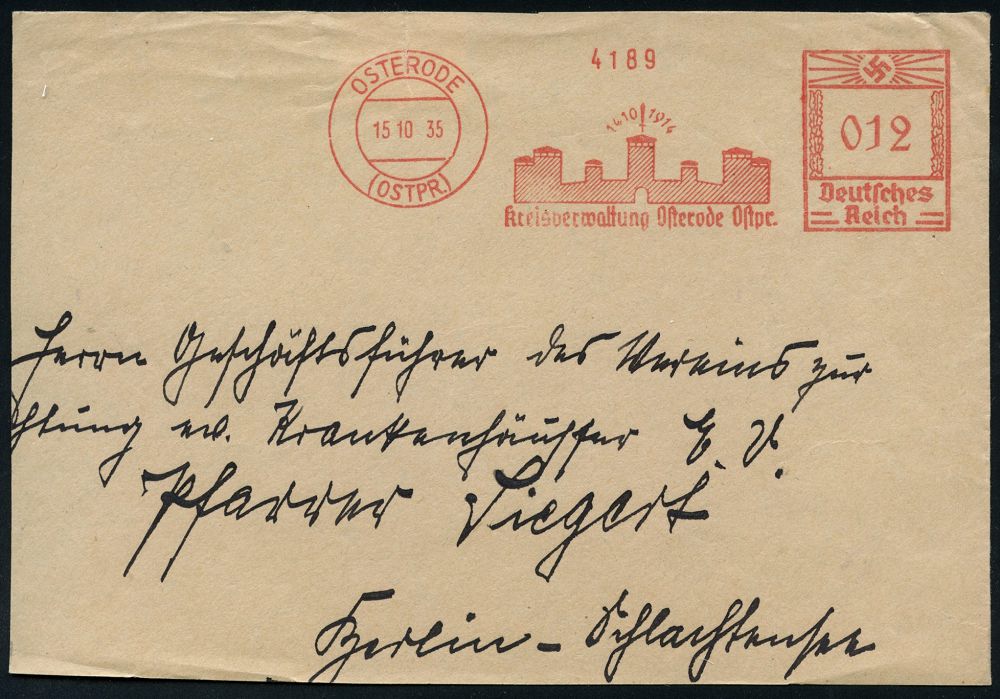 4189
OSTERODE
15 10 35
(OSTPR.)
1410 1914
Kreisverwaltung Osterode Ostpr.
012
Deutsches
Reich
Herrn Geschäftsführer des Vereins zur
chtung ev. Krankenhäusser E. V.
Pfarrer Siegert
Berlin - Schlachtensee